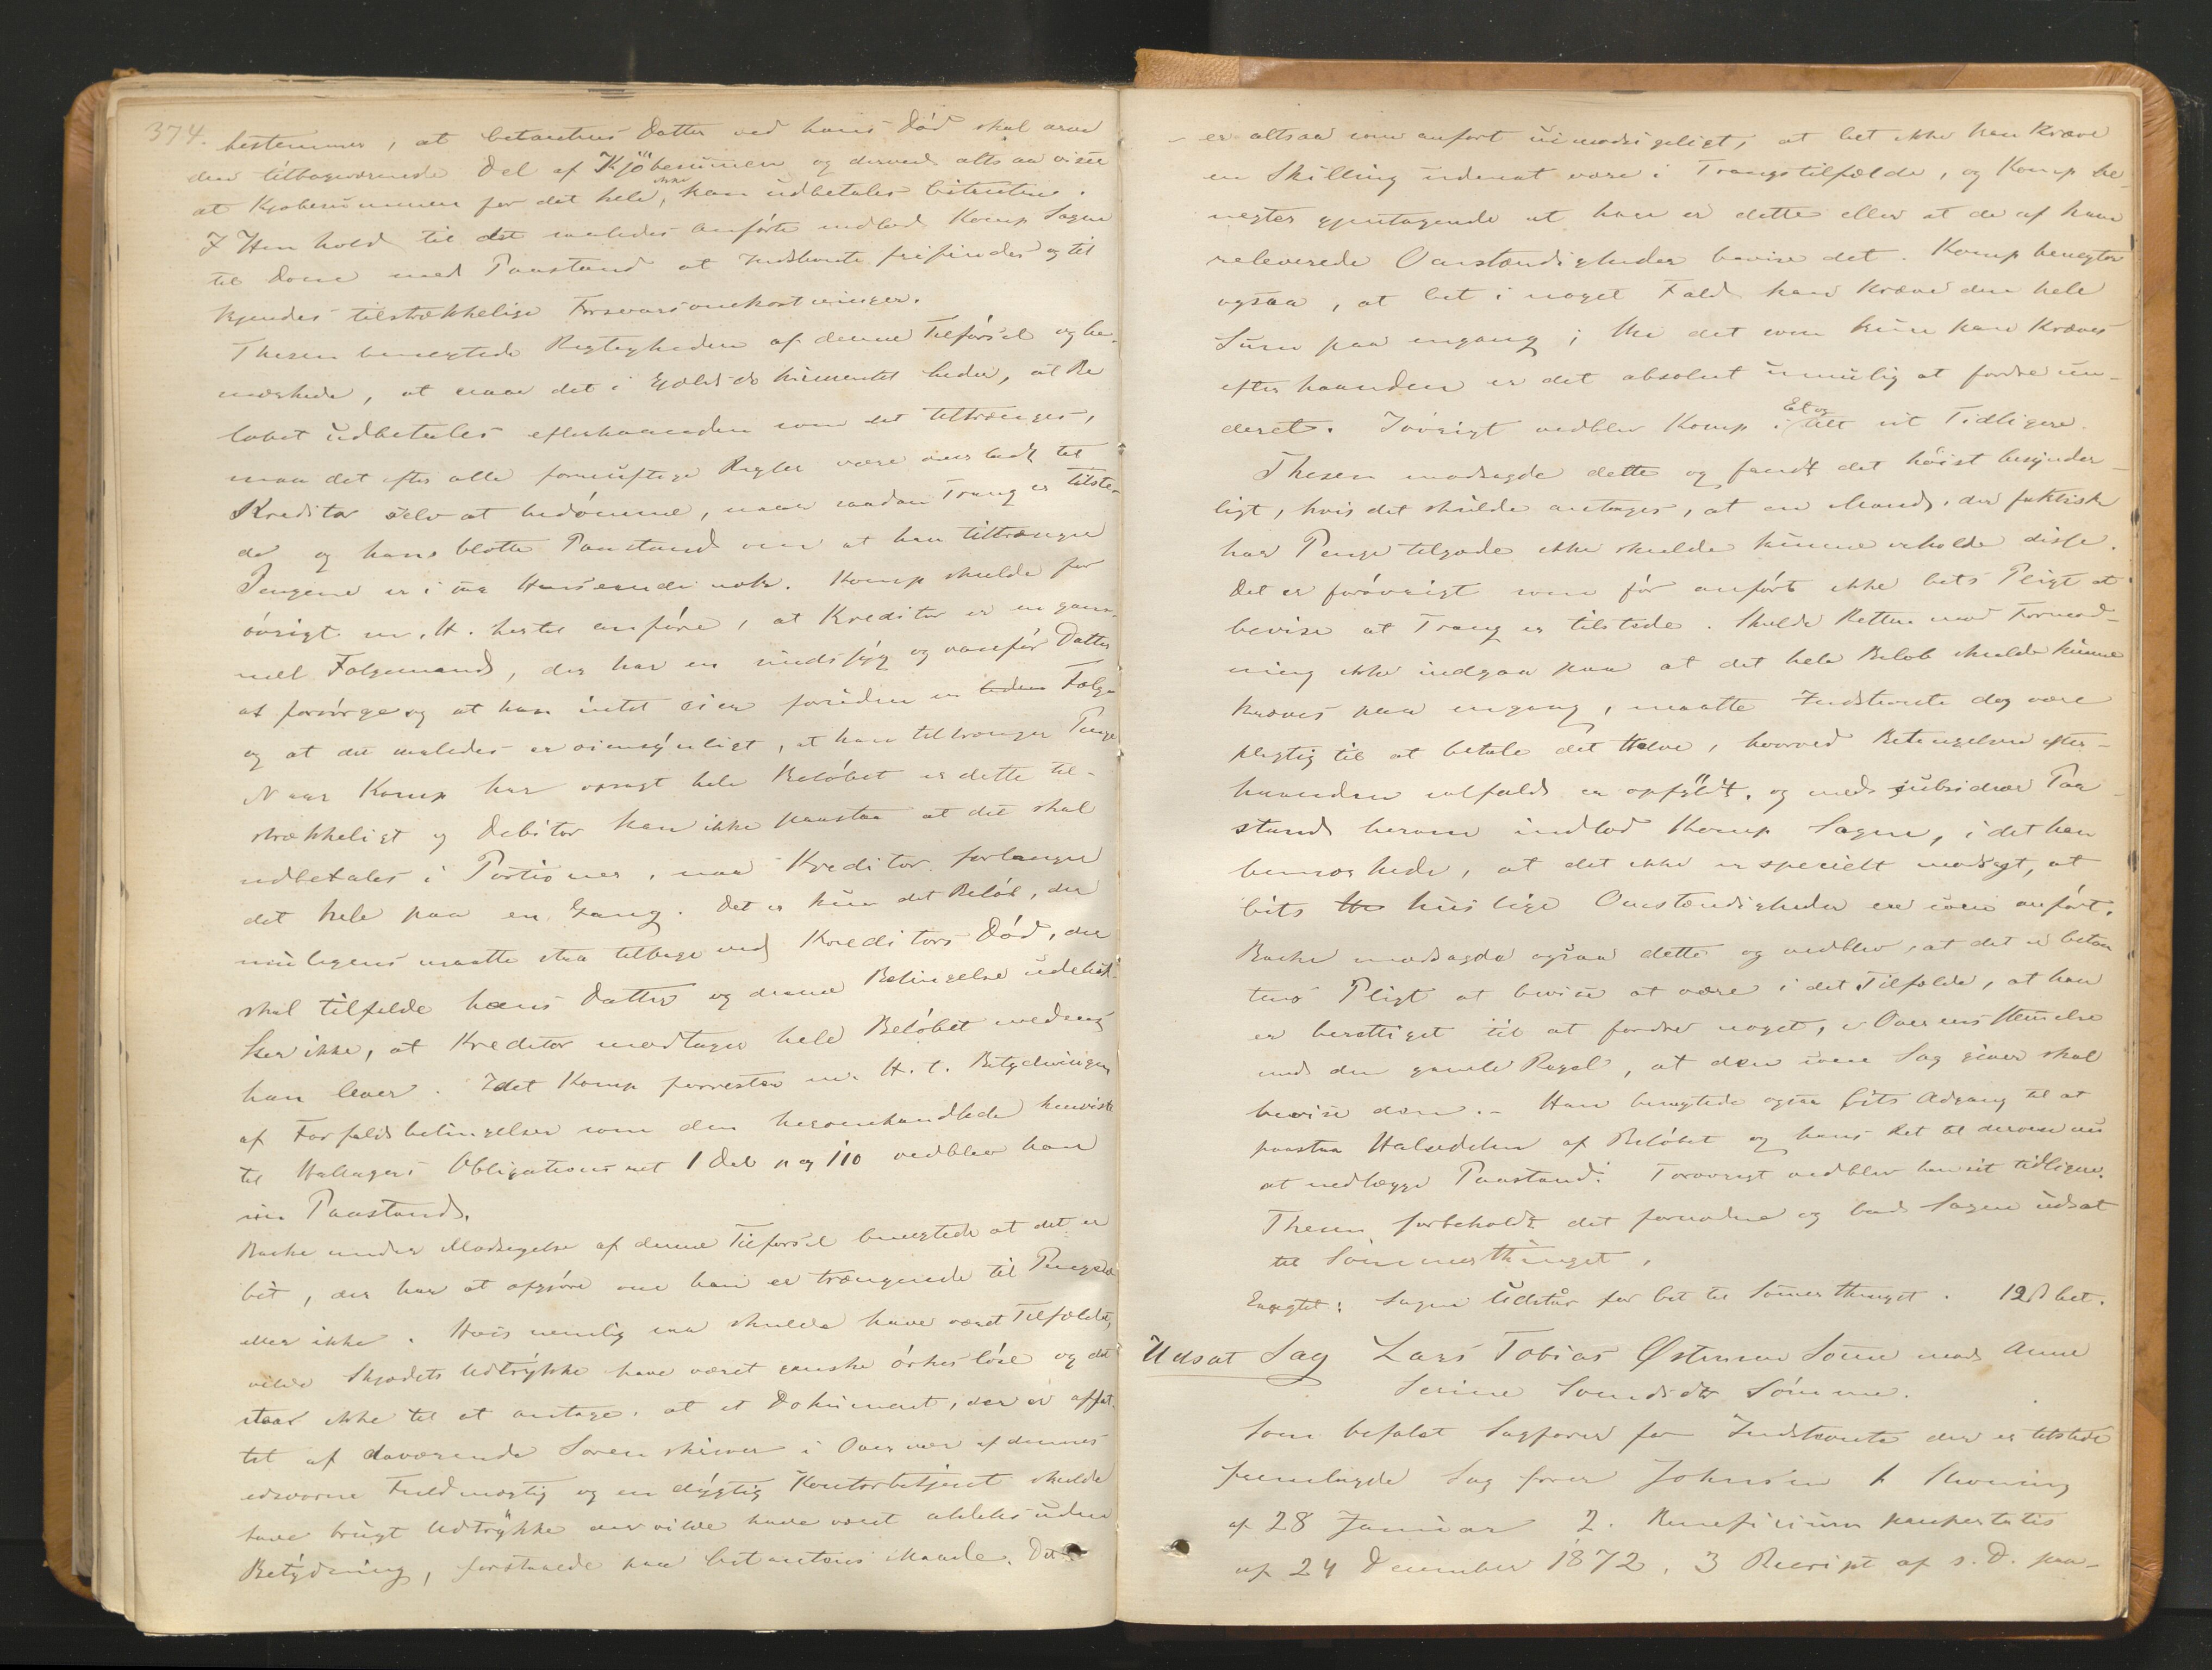 374.
bestemmer, at Citantens Datter ved hans Död skal arve
den tilbageværende Del af Kjöbesummen og derved altsaa viser
at Kjøbesummen for det hele, ikke kan udbetales Citanten.
I Henhold til det saaledes anförte indlod Komp Sagen
til Dom med Paastand at Indstevnte frifindes og til
kjendes tilstrækkelige Forsvarsomkostninger.
Thesen benegtede Rigtigheden af denne Tilförsel og be-
mærkede, at naar det i Gjældsdokumentet heder, at Be
løbet udbetales efterhaanden som det tiltrænges,
maa det efter alle fornuftige Regler være overladt til
Kreditor selv at bedömme, naar saadan Trang er tilste-
de og hans blotte Paastand om at han tiltrænger
Pengene er i saa Henseende nok. Komp skulde for
övrigt m. H. hertil anföre, at Kreditor er en gam-
mel Folgemand, der har en sindssyg og vanför Datter
at forsörge og at han intet eier foruden sin Folge
og at det saaledes er oiensynligt, at han tiltrænger Penge
Naar Komp har opsagt hele Belöbet er dette til-
strækkeligt og Debitor kan ikke paastaa at det skal
udbetales i Portioner, naar Kreditor forlanger
det hele paa en Gang. Det er kun det Belöb, der
muligens maatte staa tilbage ved Kreditors Död, der
skal tilfalde hans Datter og denne Betingelse udeluk-
ker ikke, at Kreditor modtager hele Belöbet medens
han lever. Idet Komp forresten m. H. t. Betydningen
af Forfaldsbetingelser som den heromhandlede henviste
til Hallagers Obligationsret 1 Del p og 110 vedblev han
sin Paastand.
Backe under Modsigelse af denne Tilförsel benegtede at det er
Cit, der har at afgjöre om han er trængende til Pengene
eller ikke. Hvis nemlig saa skulde have været Tilfældet,
vilde Skjødets Udtrykke have været ganske örkeslöse og det
staar ikke til at antage, at et Dokument, der er affat-
tet af daværende Sorenskriver i Overvær af dennes
edsvorne Fuldmægtig og en dygtig Kontorbetjent skulde
have brugt Udtrykke der vilde have været aldeles uden
Betydning, forstaaede paa Citantens Maade. Det
er altsaa som anfört uimodsigeligt, at Cit ikke kan kræve
en Skilling udenat være i Trangstilfælde, og Komp be-
negter gjentagende at han er dette eller at de af ham
releverede Omstændigheder bevise det. Komp benegter
ogsaa, at Cit i noget Fald kan kræve den hele
Sum paa engang; thi det som kun kan kræves
efterhaanden er det absolut umulig at fordre un-
deret. Iövrigt vedblev Komp i Et og Alt sit Tidligere.
Thesen modsagde dette og fandt det höist besynder-
ligt, hvis det skulde antages, at en Mand, der faktisk
har Penge tilgode ikke skulde kunne erholde disse.
Det er forövrigt som för anfört ikke Cits Pligt at
bevise at Trang er tilstede. Skulde Retten mod Formod-
ning ikke indgaa paa at det hele Belöb skulde kunne
kræves paa engang, maatte Indstevnte dog være
pligtig til at betale det Halve, hvorved Betingelsen efter-
haanden ialfald er opfyldt, og med subsidiær Paa-
stand herom indlod Komp Sagen, i det han
bemærkede, at det ikke er specielt modsagt, at
Cits huslige Omstændigheder ere som anfört.
Backe modsagde ogsaa dette og vedblev, at det er Citan
tens Pligt at bevise at være i det Tilfælde, at han
er berettiget til at fordre noget, i Overensstemmelse
med den gamle Regel, at den som Sag giver skal
bevise den. - Han benegtede ogsaa Cits Adgang til at
paastaa Halvdelen af Belöbet og hans Ret til derom nu
at nedlægge Paastand. Forövrigt vedblev han sit tidligere.
Thesen forbeholdt det fornødne og bad Sagen udsat
til Sommerthinget.
Eragtet: Sagen Udstaar for Cit til Sommerthinget. 12 β bet.
Udsat Sag Lars Tobias Østensen Sömme mod Anne
Serine Svendsdtr Sömme.
Som befalet Sagförer for Indstevnte der er tilstede
fremlagde Sagförer Johnsen 1 Stevning
af 28 Januar 2. Beneficium paupertatis
af 24 December 1872, 3 Rescript af s. D. paa-